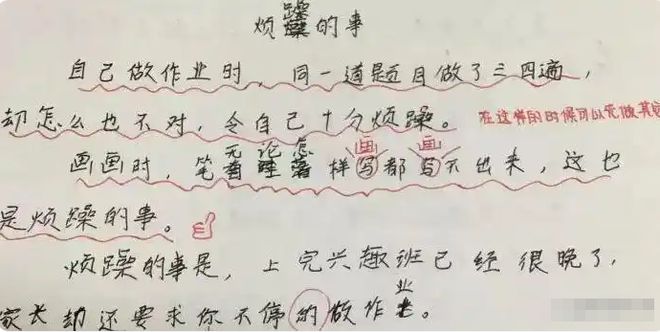 烦躁的事
自己做作业时，同一道题目做了三四遍，
却怎么也不对，令自己十分烦躁。
在这样的时候可以先做其它
无论怎 画 画
画画时，笔样写都写不出来，这也
是烦躁的事。
烦躁的事是，上完兴趣班已经很晚了，
业
家长却还要求你不停的做作。